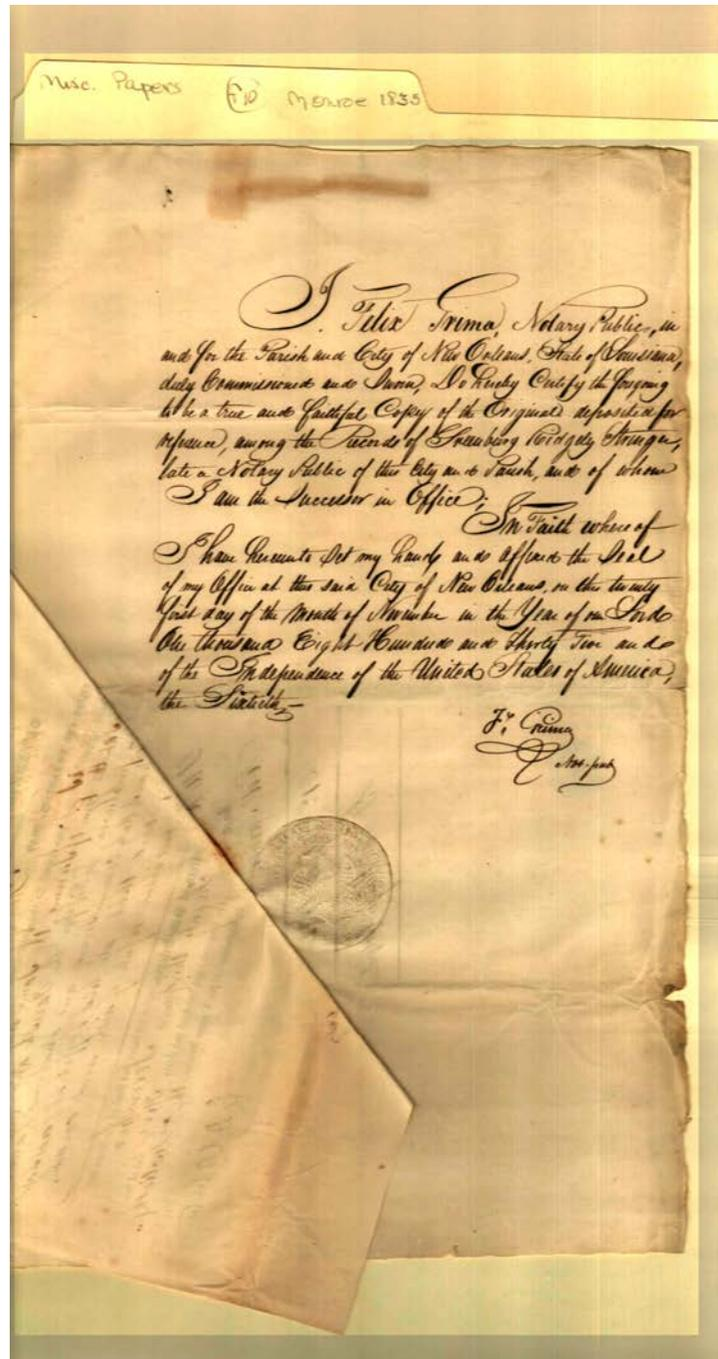 Misc. Papers F10 Monroe 1835
I. Felix Grima, Notary Public, in
and for the Parish and City of New Orleans, State of Louisiana,
duly Commissioned and Sworn, Do hereby Certify the forgoing
to be a true and faithful Copy of the Original deposited for
referance, among the Records of Greenburg Ridgely Stringer,
late a Notary Public of this City and Parish, and of whom
I am the Successor in Office;
In Faith whereof
I have hereunto Set my hand and affixed the Seal
of my Office at this said City of New Orleans, on this twenty
first day of the Month of November in the Year of our Lord
One thousand Eight Hundred and Thirty Five and
of the Independence of the United States of America,
the Sixtieth,—
Fx. Grima
Not. pub